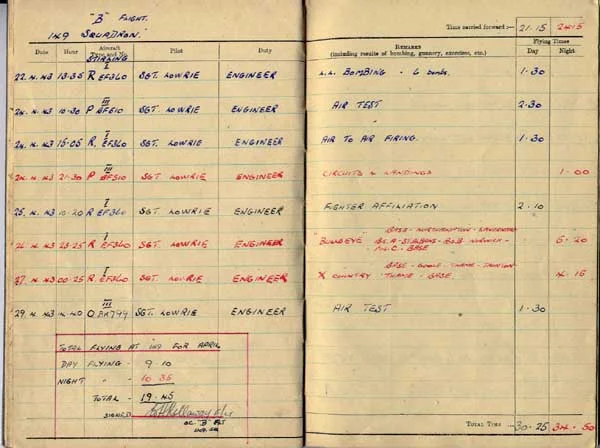 "B" FLIGHT.
149 SQUADRON.
Time carried forward :— 21.15 24.15
Date Hour Aircraft Type and No. Pilot Duty
REMARKS
(including results of bombing, gunnery, exercises, etc.)
Flying Times
Day Night
STIRLING
22.4.43 13.35 R EF360 SGT. LOWRIE ENGINEER L.L. BOMBING - 6 bombs. 1.30
24.4.43 10.30 P III BF510 SGT. LOWRIE ENGINEER AIR TEST 2.30
24.4.43 15.05 R. I EF360 SGT. LOWRIE ENGINEER AIR TO AIR FIRING. 1.30
24.4.43 21.30 P III BF510 SGT. LOWRIE ENGINEER CIRCUITS & LANDINGS 1.00
25.4.43 10.20 R I EF360 SGT. LOWRIE ENGINEER FIGHTER AFFILIATION 2.10
BASE - NORTHAMPTON -
26.4.43 23.25 R I EF360 SGT. LOWRIE ENGINEER "BULLSEYE" NORWICH - BASE 5.20
BASE - GOOLE - THAME - TAUNTON
27.4.43 00.25 R. I EF360 SGT. LOWRIE ENGINEER X COUNTRY THAME - BASE. 4.15
29.4.43 14.40 O III BK799 SGT. LOWRIE ENGINEER AIR TEST 1.30
TOTAL FLYING AT 149 FOR APRIL
DAY FLYING - 9.10
NIGHT " - 10.35
TOTAL - 19.45
SIGNED Kellaway F/Lt
OC "B" FLT
TOTAL TIME 30.25 34.50